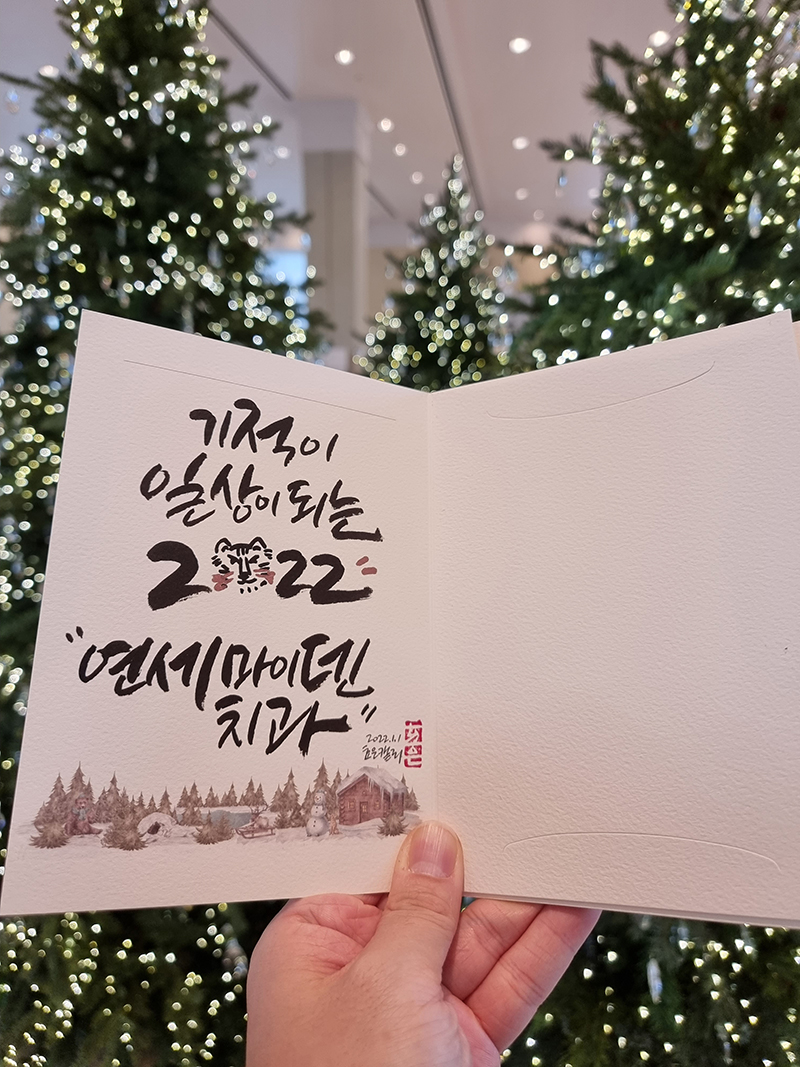 기적이
일상이 되는
2022
"연세마이덴
치과"
2022.1.1
효은캘리
효은